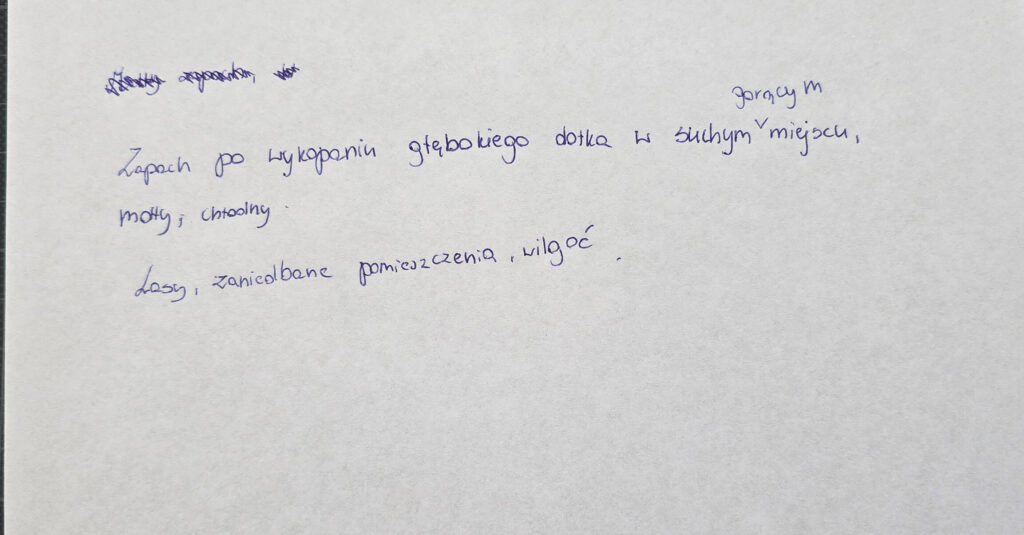 Zapach po wykopaniu głębokiego dołka w suchym gorącym miejscu,
mdły, chłodny.
Lasy, zaniedbane pomieszczenia, wilgoć.